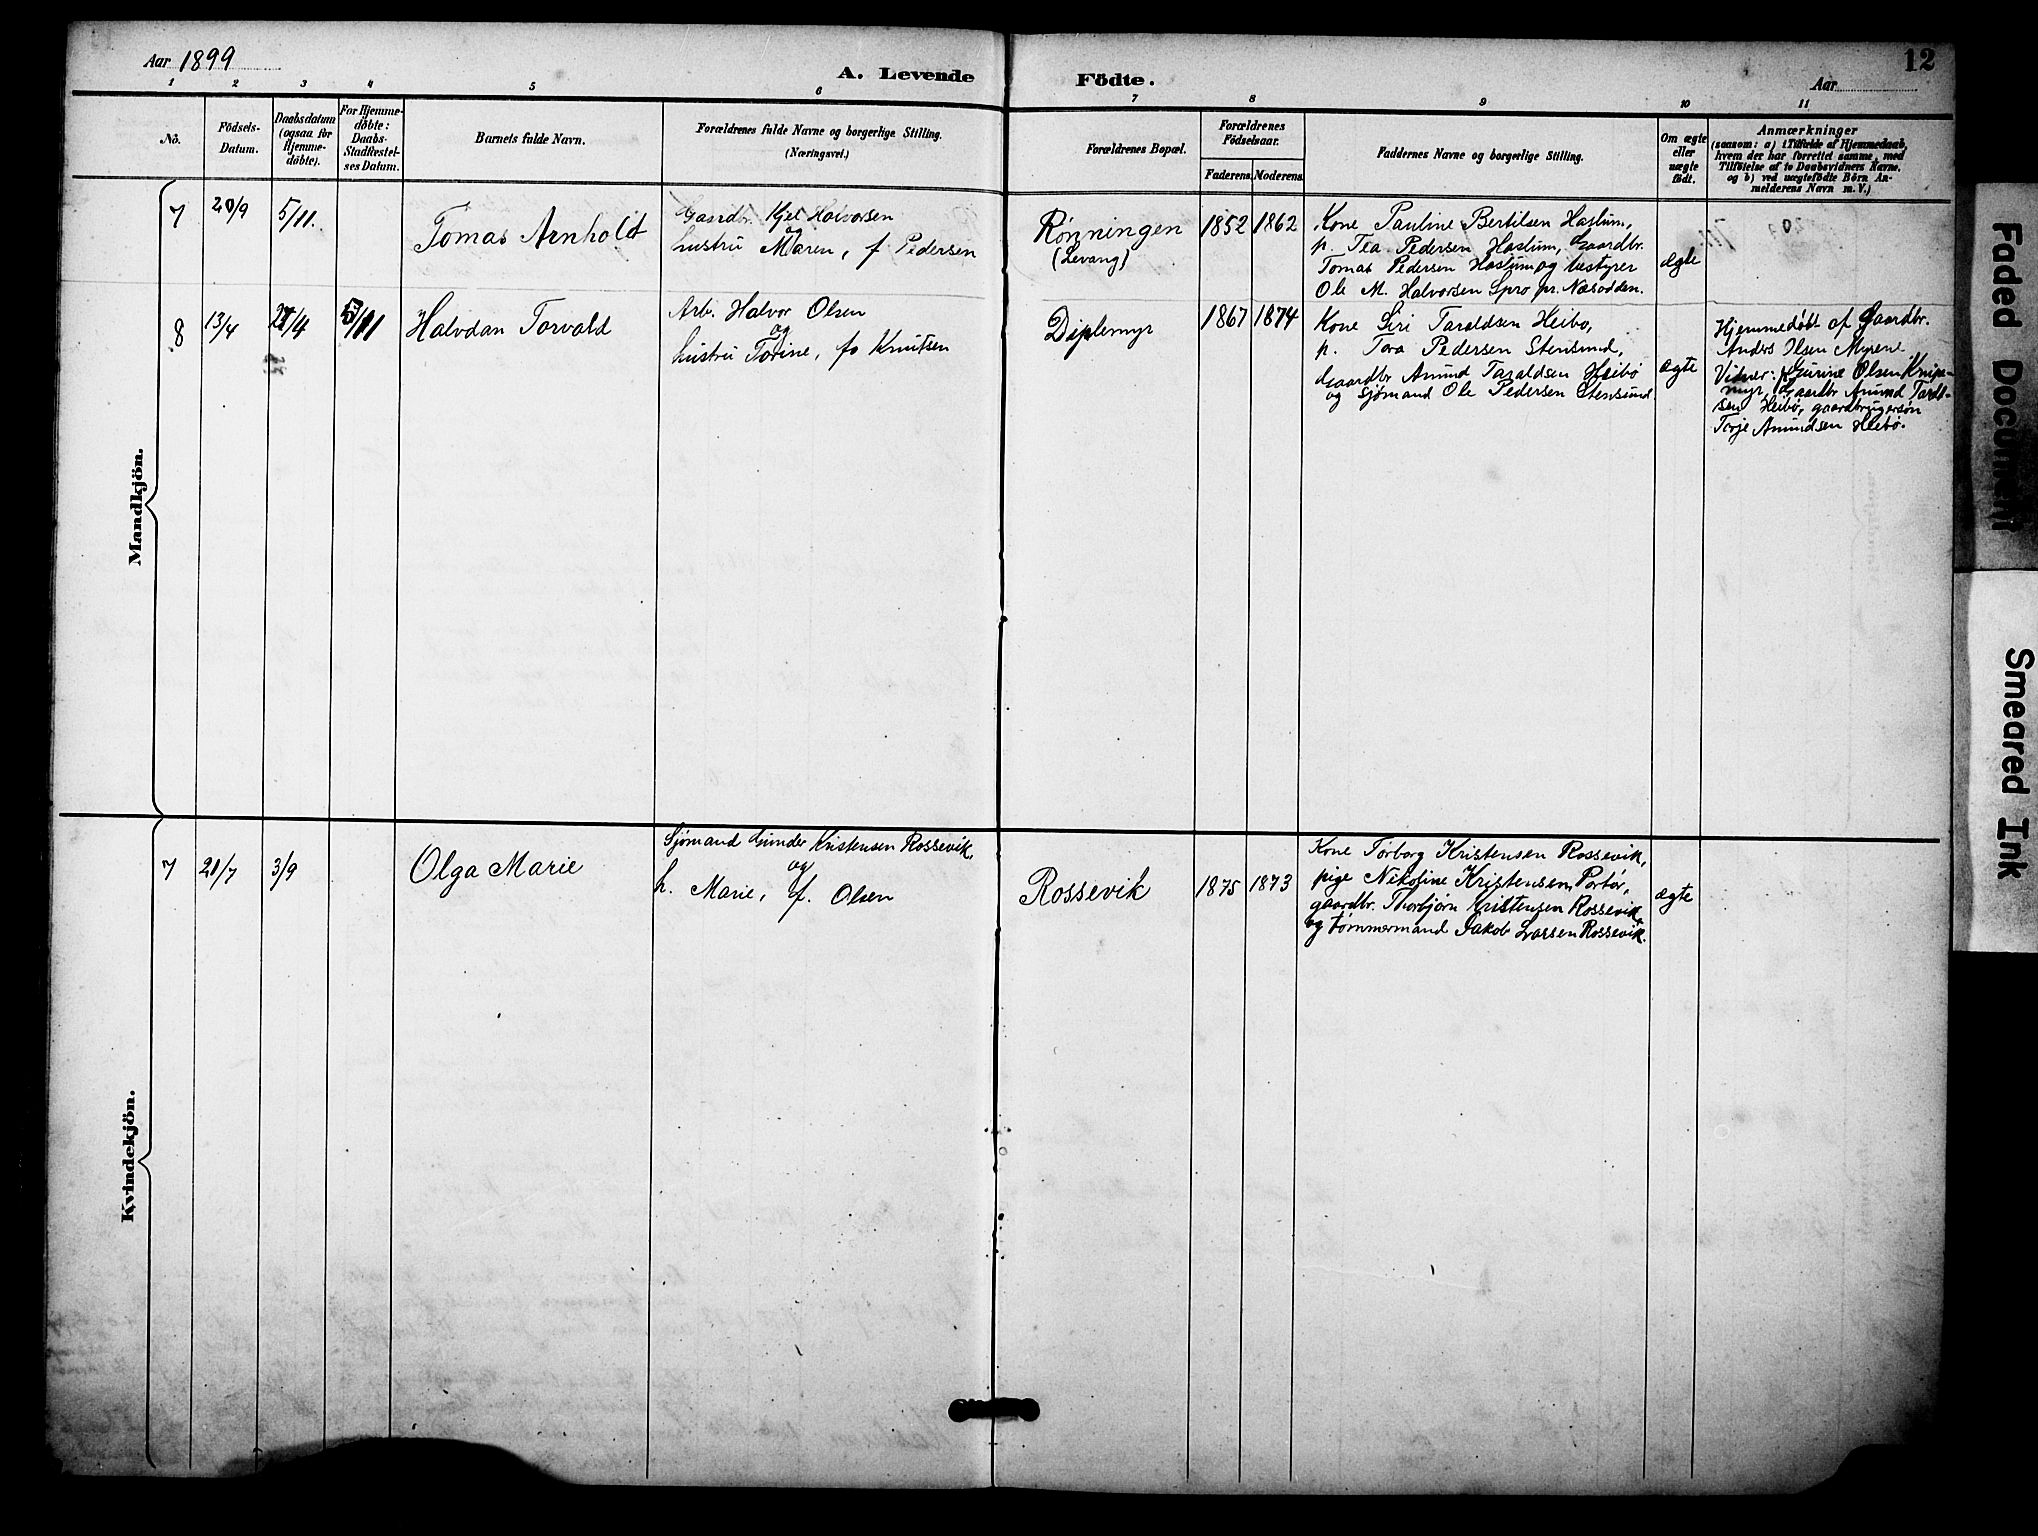 Aar 1899
A. Levende Födte.
Aar
12
1 2 3 4 5 6 7 8 9 10 11
No.
Födsels-
Datum.
Daabsdatum
(ogsaa for
Hjemme-
døbte).
For Hjemme-
døbte:
Daabs-
Stadfæstel-
ses Datum.
Barnets fulde Navn.
Forældrenes fulde Navne og borgerlige Stilling.
(Næringsvei.)
Forældrenes Bopæl.
Forældrenes
Födselsaar.
Faderens. Moderens.
Faddernes Navne og borgerlige Stilling.
Om ægte
eller
uægte
født.
Anmærkninger
(saasom: a) i Tilfælde af Hjemmedaab,
hvem der har forrettet samme, med
Tilföielse af to Daabsvidners Navne,
og b) ved uægtefödte Börn An-
melderens Navn m. V.)
Mandkjön.
7
20/9
5/11.
Tomas Arnholdt
Gaardbr. Kjel Halvorsen
og
hustru Maren, f. Pedersen
Rønningen
(Levang)
1852 1862
Kone Pauline Bertilsen Haslum,
p. Tea Pedersen Haslum, Gaardbr.
Tomas Pedersen Haslum og bestyrer
Ole M. Halvorsen Spro pr. Næsodden.
ægte
8
13/4
/4
5/11
Halvdan Torvald
Arb. Halvor Olsen
og
hustru Torine, fø Knutsen
Diplemyr
1867 1874
Kone Siri Taraldsen Heibø,
p. Tora Pedersen Stensund,
Gaardbr Anund Taraldsen Heibø
og Sjømand Ole Pedersen Stensund.
ægte
Hjemmedøbt af Gaardbr.
Anders Olsen Myrene.
Vidner: K. Gurine Olsen Knipe-
myr, Gaardbr Anund Tarald-
sen Heibø, gaardbrugersøn
Terje Anundsen Heibø.
Kvindekjön.
7
21/7
3/9
Olga Marie
Sjømand Gunder Kristensen Rossevik,
og
h. Marie, f. Olsen
Rossevik
1875 1873
Kone Torborg Kristensen Rossevik,
pige Nikoline Kristensen, Portør,
gaardbr. Thorbjørn Kristensen Rossevik,
og tømmermand Jakob Larsen Rossevik.
ægte
Faded Document
Smeared Ink